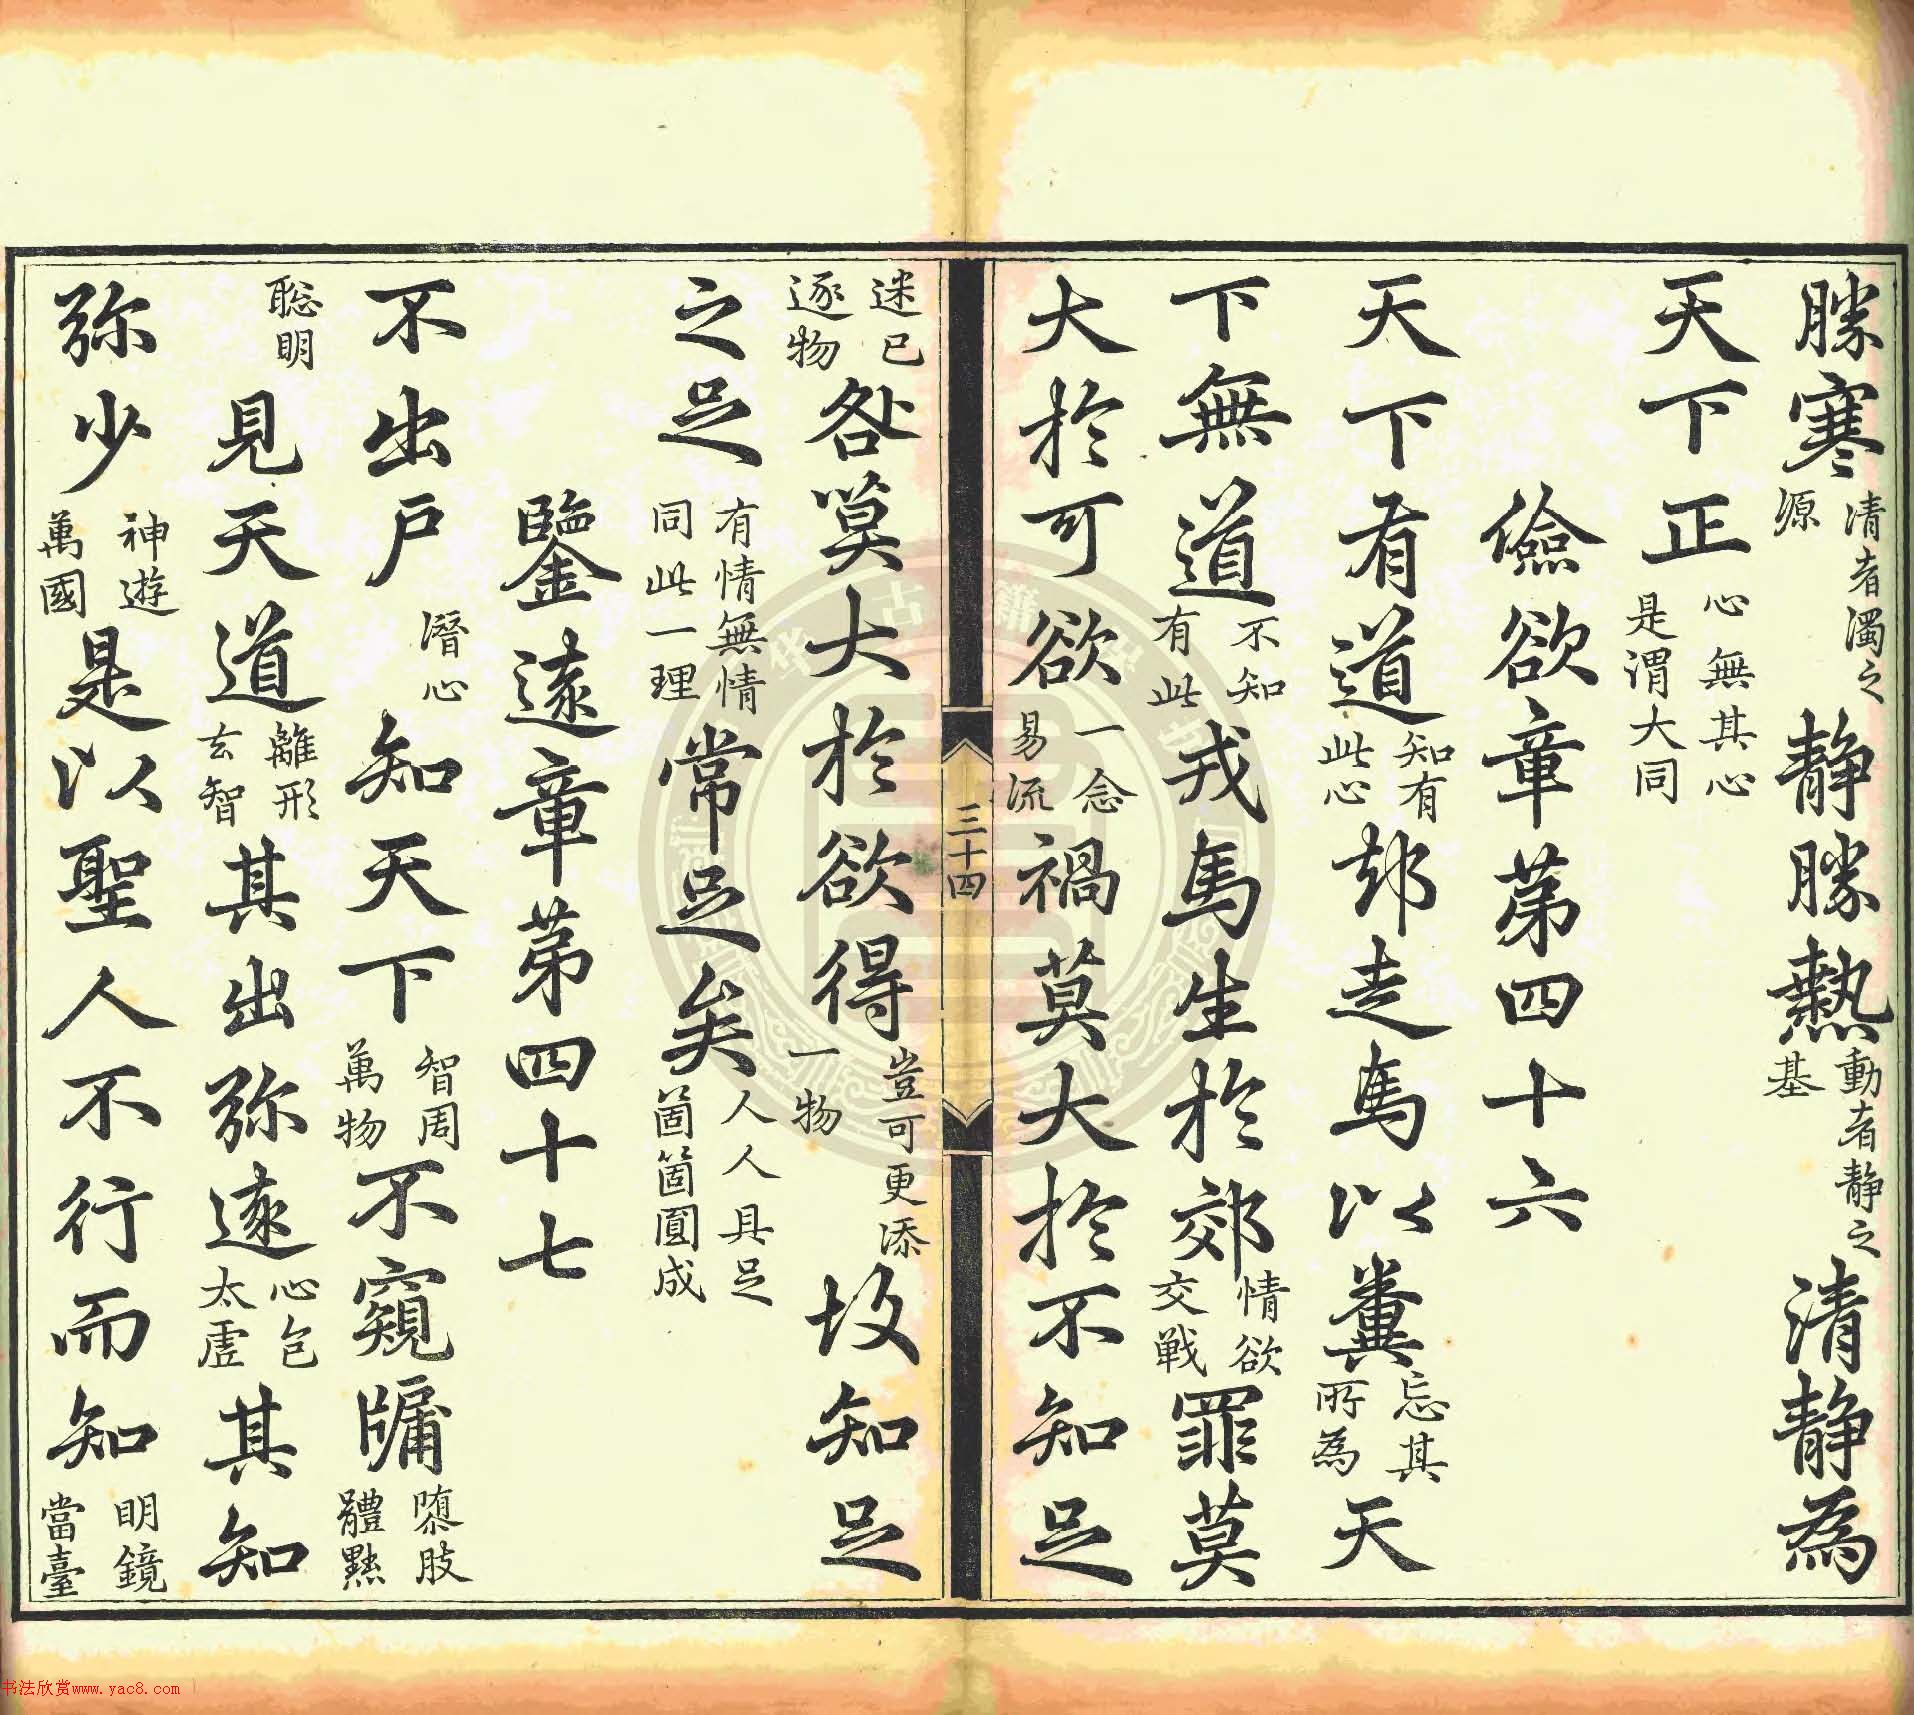 勝寒清者濁之源静勝熱動者静之基清静為
天下正心無其心是謂大同
儉欲章第四十六
天下有道知有此心却走馬以糞忘其所為天
下無道不知有此戎馬生於郊情欲交戰罪莫
大於可欲一念易流禍莫大於不知足
三十四
迷已逐物咎莫大於欲得豈可更添一物故知足
之足有情無情同此一理常足矣人人具足箇箇圓成
鑒遠章第四十七
不出戶潛心知天下智周萬物不窺牖隳肢體黜
聰明見天道離形去智其出彌遠心包太虛其知
彌少神遊萬國是以聖人不行而知明鏡當臺
书法欣赏www.yac8.com